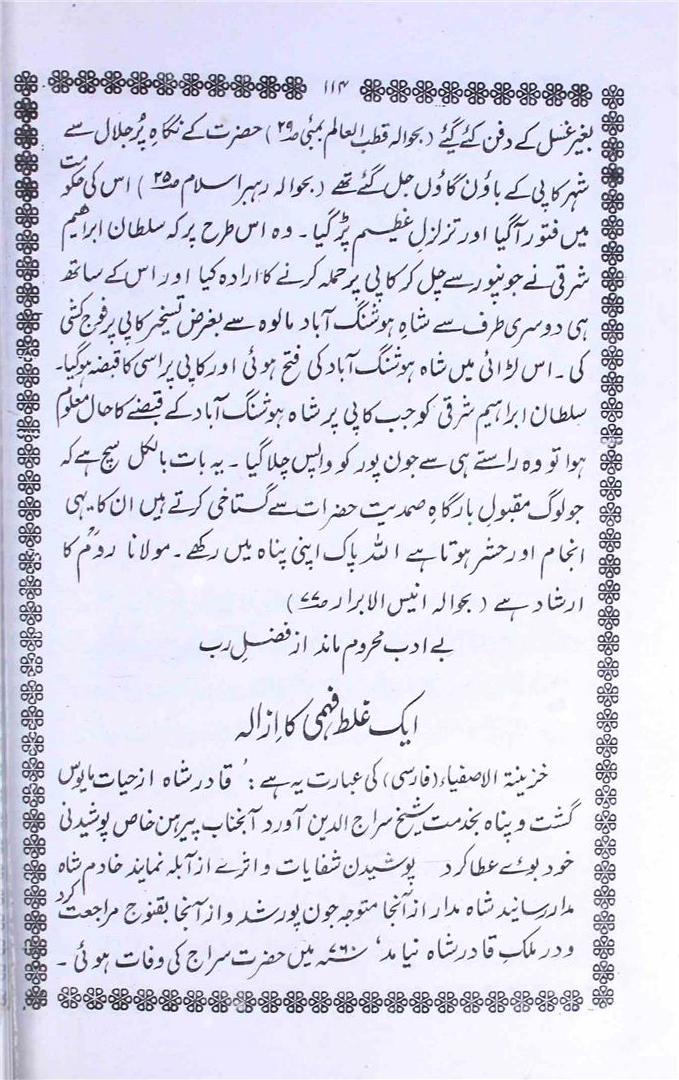 ۱۱۴
بغیر غسل کے دفن کئے گئے (بحوالہ قطب العالم بمبئی ص۲۹) حضرت کے نگاہِ پُر جلال سے
شہر کاپی کے باؤن گاؤں جل گئے تھے (بحوالہ رہبر اسلام ص۲۵) اس کی حکومت
میں فتور آگیا اور تزلزلِ عظیم پڑ گیا۔ وہ اس طرح پر کہ سلطان ابراھیم
شرقی نے جونپور سے چل کر کاپی پر حملہ کرنے کا ارادہ کیا اور اس کے ساتھ
ہی دوسری طرف سے شاہِ ہوشنگ آباد مالوہ سے بغرض تسخیر کاپی پر فوج کشی
کی۔ اس لڑائی میں شاہ ہوشنگ آباد کی فتح ہوئی اور کاپی پر اسی کا قبضہ ہوگیا۔
سلطان ابراہیم شرقی کو جب کاپی پر شاہ ہوشنگ آباد کے قبضے کا حال معلوم
ہوا تو وہ راستے ہی سے جون پور کو واپس چلا گیا۔ یہ بات بالکل سچ ہے کہ
جو لوگ مقبول بارگاہِ صمدیت حضرات سے گستاخی کرتے ہیں ان کا یہی
انجام اور حشر ہوتا ہے اللہ پاک اپنی پناہ میں رکھے۔ مولانا رومؒ کا
ارشاد ہے (بحوالہ انیس الابرار ص۷۷)
بے ادب محروم ماند از فضلِ رب
ایک غلط فہمی کا اِزالہ
خزینۃ الاصفیاء (فارسی) کی عبارت یہ ہے: ’قادر شاہ از حیات مایوس
گشت و پناہ بخدمت شیخ سراج الدین آورد آنجناب پیرہن خاص پوشیدنی
خود بوئے عطا کرد پوشیدن شفایات و اثرے از آبلہ نمایند خادم شاہ
مدار رسانید شاہ مدار از آنجا متوجہ جون پور شد و از آنجا بقنوج مراجعت کرد
و در ملکِ قادر شاہ نیامد‘ ۷۶۰ھ میں حضرت سراج کی وفات ہوئی۔